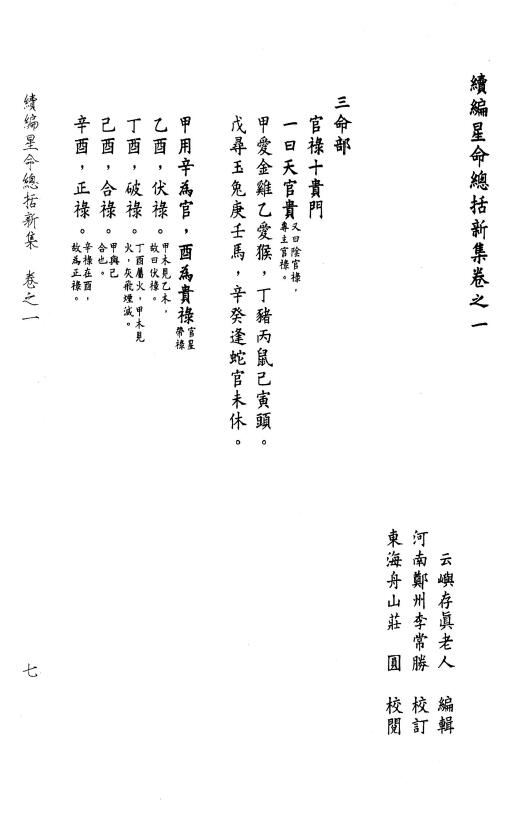 續編星命總括新集卷之一
云嶼存眞老人　編輯
河南鄭州李常勝　校訂
東海舟山莊　圓　校閱
三命部
官祿十貴門
一曰天官貴又曰陰官祿，專主官祿。
甲愛金雞乙愛猴，丁豬丙鼠己寅頭。
戊尋玉兔庚壬馬，辛癸逢蛇官未休。
甲用辛為官，酉為貴祿官星帶祿
乙酉，伏祿。甲木見乙木，故曰伏祿。
丁酉，破祿。丁酉屬火，甲木見火，灰飛煙滅。
己酉，合祿。甲與己合也。
辛酉，正祿。辛祿在酉，故為正祿。
續編星命總括新集　卷之一
七